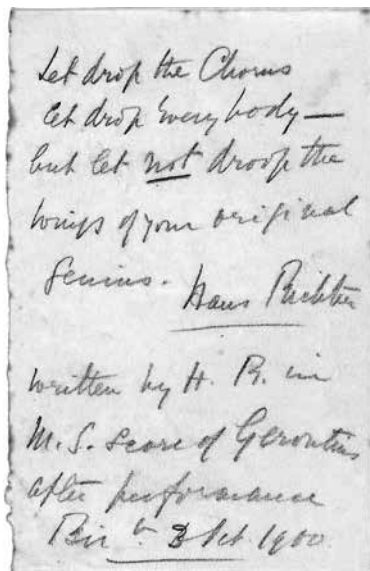 Let drop the Chorus
let drop everybody —
but let not droop the
wings of your original
Genius.
Hans Richter
written by H. R. in
M.S. score of Gerontius
after performance
Birm 3 Oct. 1900